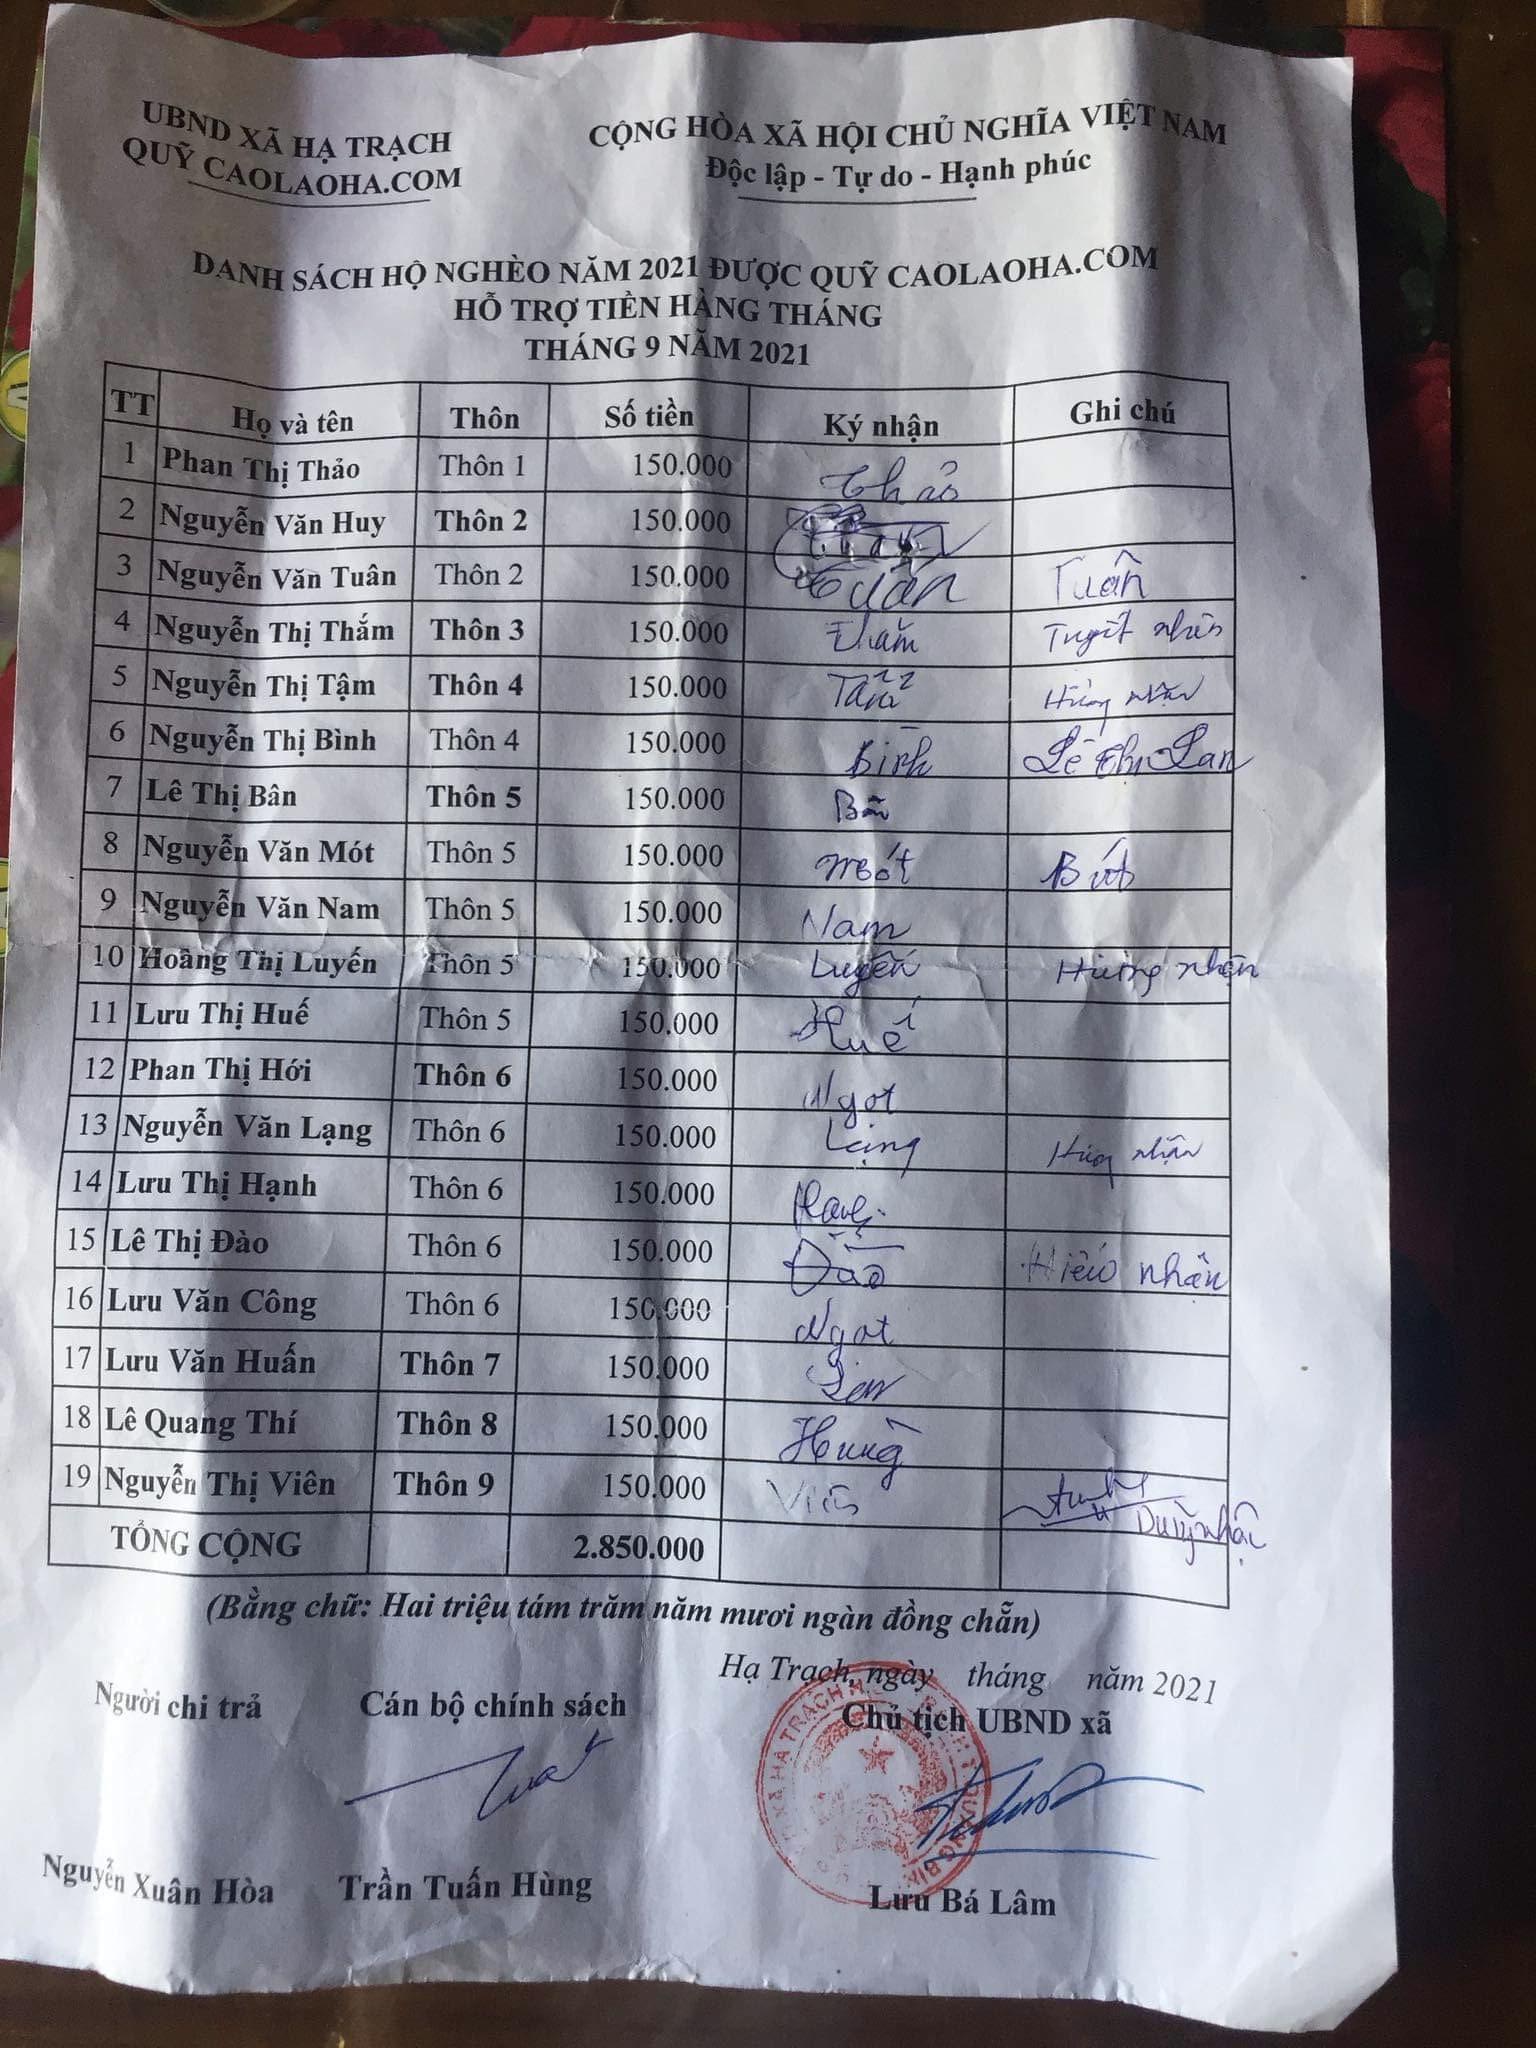 UBND XÃ HẠ TRẠCH
QUỸ CAOLAOHA.COM
CỘNG HÒA XÃ HỘI CHỦ NGHĨA VIỆT NAM
Độc lập - Tự do - Hạnh phúc
DANH SÁCH HỘ NGHÈO NĂM 2021 ĐƯỢC QUỸ CAOLAOHA.COM
HỖ TRỢ TIỀN HÀNG THÁNG
THÁNG 9 NĂM 2021
TT Họ và tên Thôn Số tiền Ký nhận Ghi chú
1 Phan Thị Thảo Thôn 1 150.000 Thảo
2 Nguyễn Văn Huy Thôn 2 150.000
3 Nguyễn Văn Tuân Thôn 2 150.000 Tuân Tuân
4 Nguyễn Thị Thắm Thôn 3 150.000 Thắm Tuyết nhận
5 Nguyễn Thị Tậm Thôn 4 150.000 nhận
6 Nguyễn Thị Bình Thôn 4 150.000 Bình Lê Thị Lan
7 Lê Thị Bân Thôn 5 150.000 Bân
8 Nguyễn Văn Mót Thôn 5 150.000 Mót Bút
9 Nguyễn Văn Nam Thôn 5 150.000 Nam
10 Hoàng Thị Luyến Thôn 5 150.000 Luyến Hường nhận
11 Lưu Thị Huế Thôn 5 150.000 Huế
12 Phan Thị Hới Thôn 6 150.000 Ngot
13 Nguyễn Văn Lạng Thôn 6 150.000 Lạng nhận
14 Lưu Thị Hạnh Thôn 6 150.000 Hạnh
15 Lê Thị Đào Thôn 6 150.000 Đào Hiếu nhận
16 Lưu Văn Công Thôn 6 150.000 Ngot
17 Lưu Văn Huấn Thôn 7 150.000
18 Lê Quang Thí Thôn 8 150.000 Hùng
19 Nguyễn Thị Viên Thôn 9 150.000 Viên
TỔNG CỘNG 2.850.000
(Bằng chữ: Hai triệu tám trăm năm mươi ngàn đồng chẵn)
Hạ Trạch, ngày tháng năm 2021
Người chi trả Cán bộ chính sách Chủ tịch UBND xã
Nguyễn Xuân Hòa Trần Tuấn Hùng Lưu Bá Lâm